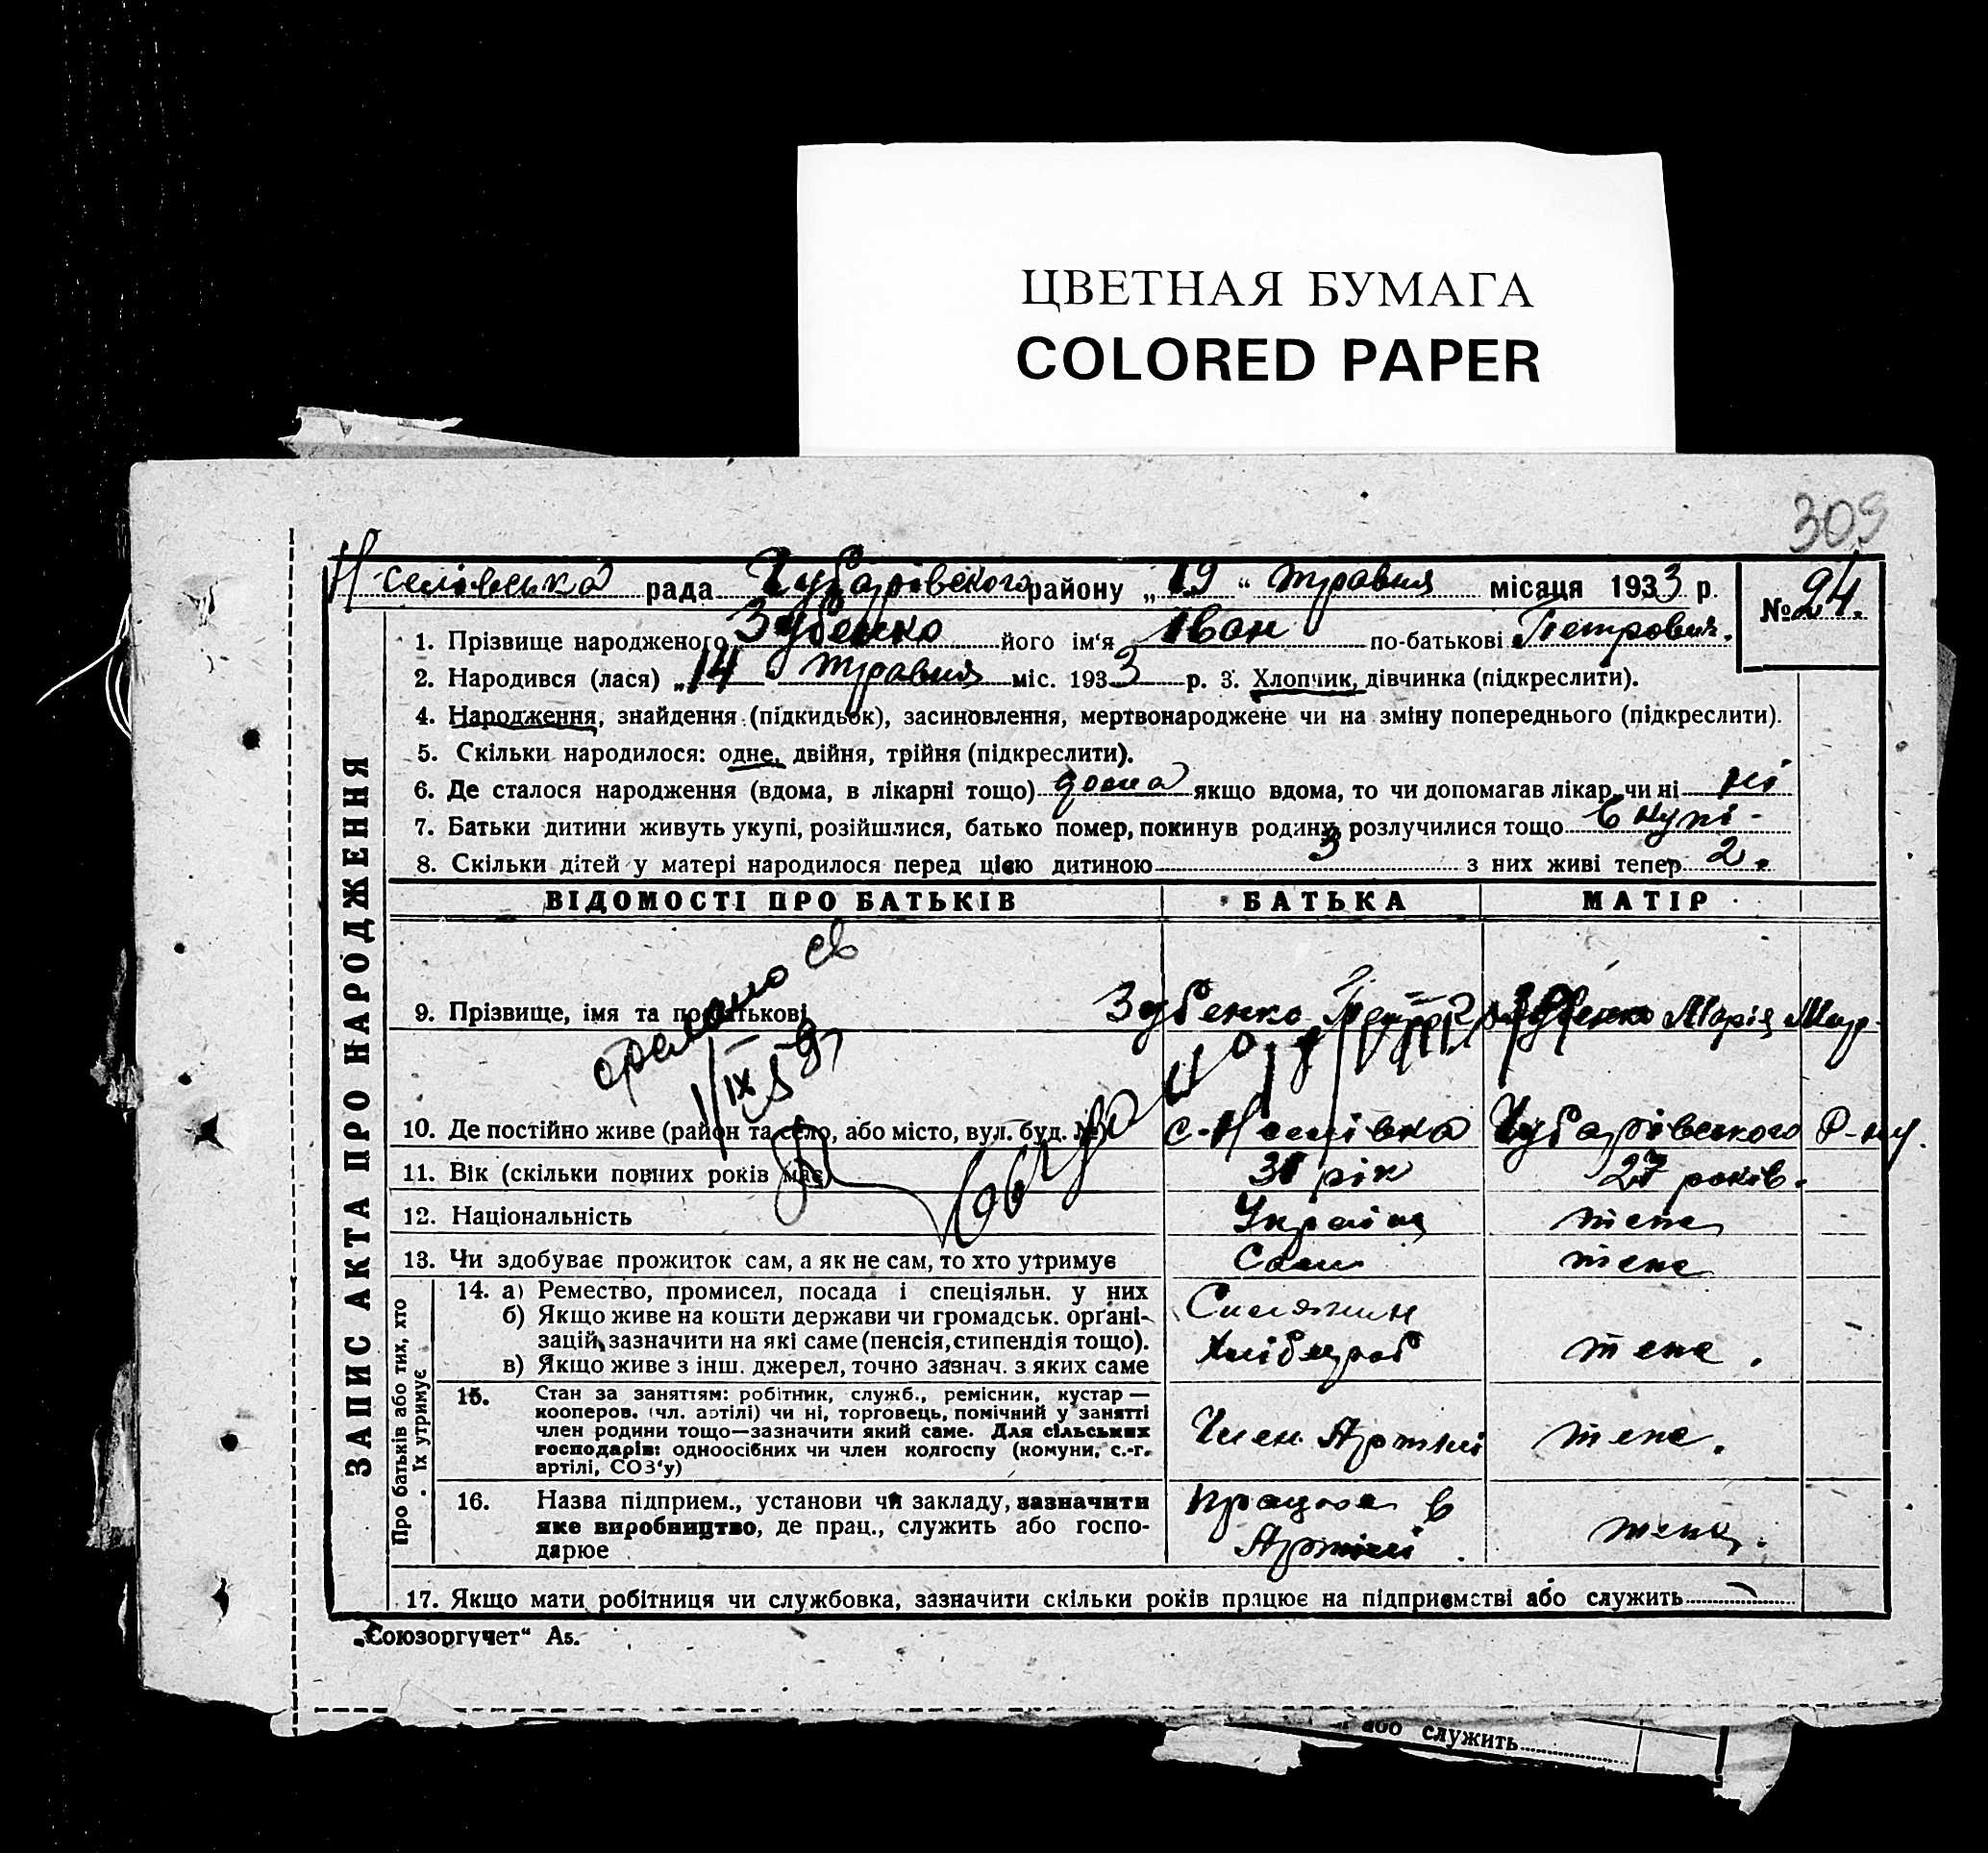 ЦВЕТНАЯ БУМАГА
COLORED PAPER
309
рада Чубарівського району „19“ травня місяця 1933 р. №94.
1. Прізвище народженого Зубенко його ім‘я Іван по-батькові Петрович.
2. Народився (лася) „14 травня міс. 1933 р. 3. Хлопчик, дівчинка (підкреслити).
4. Народження, знайдення (підкидьок), засиновлення, мертвонароджене чи на зміну попереднього (підкреслити).
5. Скільки народилося: одне, двійня, трійня (підкреслити).
6. Де сталося народження (вдома, в лікарні тощо) дома якщо вдома, то чи допомагав лікар чи ні ні
7. Батьки дитини живуть укупі, розійшлися, батько помер, покинув родину, розлучилися тощо в купі-
8. Скільки дітей у матері народилося перед цією дитиною 3 з них живі тепер 2.
ВІДОМОСТІ ПРО БАТЬКІВ БАТЬКА МАТІР
9. Прізвище, імя та по батькові Зубенко Зубенко Марія
10. Де постійно живе (район та село, або місто, вул. буд. № Чубарівського Р-ну.
11. Вік (скільки повних років має) рік 27 років.
12. Національність Украінц теж
13. Чи здобуває прожиток сам, а як не сам, то хто утримує Сам теж
14. а) Ремество, промисел, посада і спеціяльн. у них
б) Якщо живе на кошти держави чи громадськ. органі-
зацій, зазначити на які саме (пенсія, стипендія тощо).
в) Якщо живе з інш. джерел, точно зазнач. з яких саме
Хлібороб теж.
15. Стан за заняттям: робітник, служб., ремісник, кустар —
кооперов. (чл. артілі) чи ні, торговець, помічний у занятті
член родини тощо—зазначити який саме. Для сільських
господарів: одноосібних чи член колгоспу (комуни, с.-г.
артілі, СОЗ‘у)
Член Артілі теж.
16. Назва підприєм., установи чи закладу, зазначити
яке виробництво, де прац., служить або госпо-
дарює
Працює в
Артілі теж.
17. Якщо мати робітниця чи службовка, зазначити скільки років працює на підприємстві або служить
ЗАПИС АКТА ПРО НАРОДЖЕННЯ
Про батьків або тих, хто
їх утримує
„Союзоргучет“ А5.
або служить